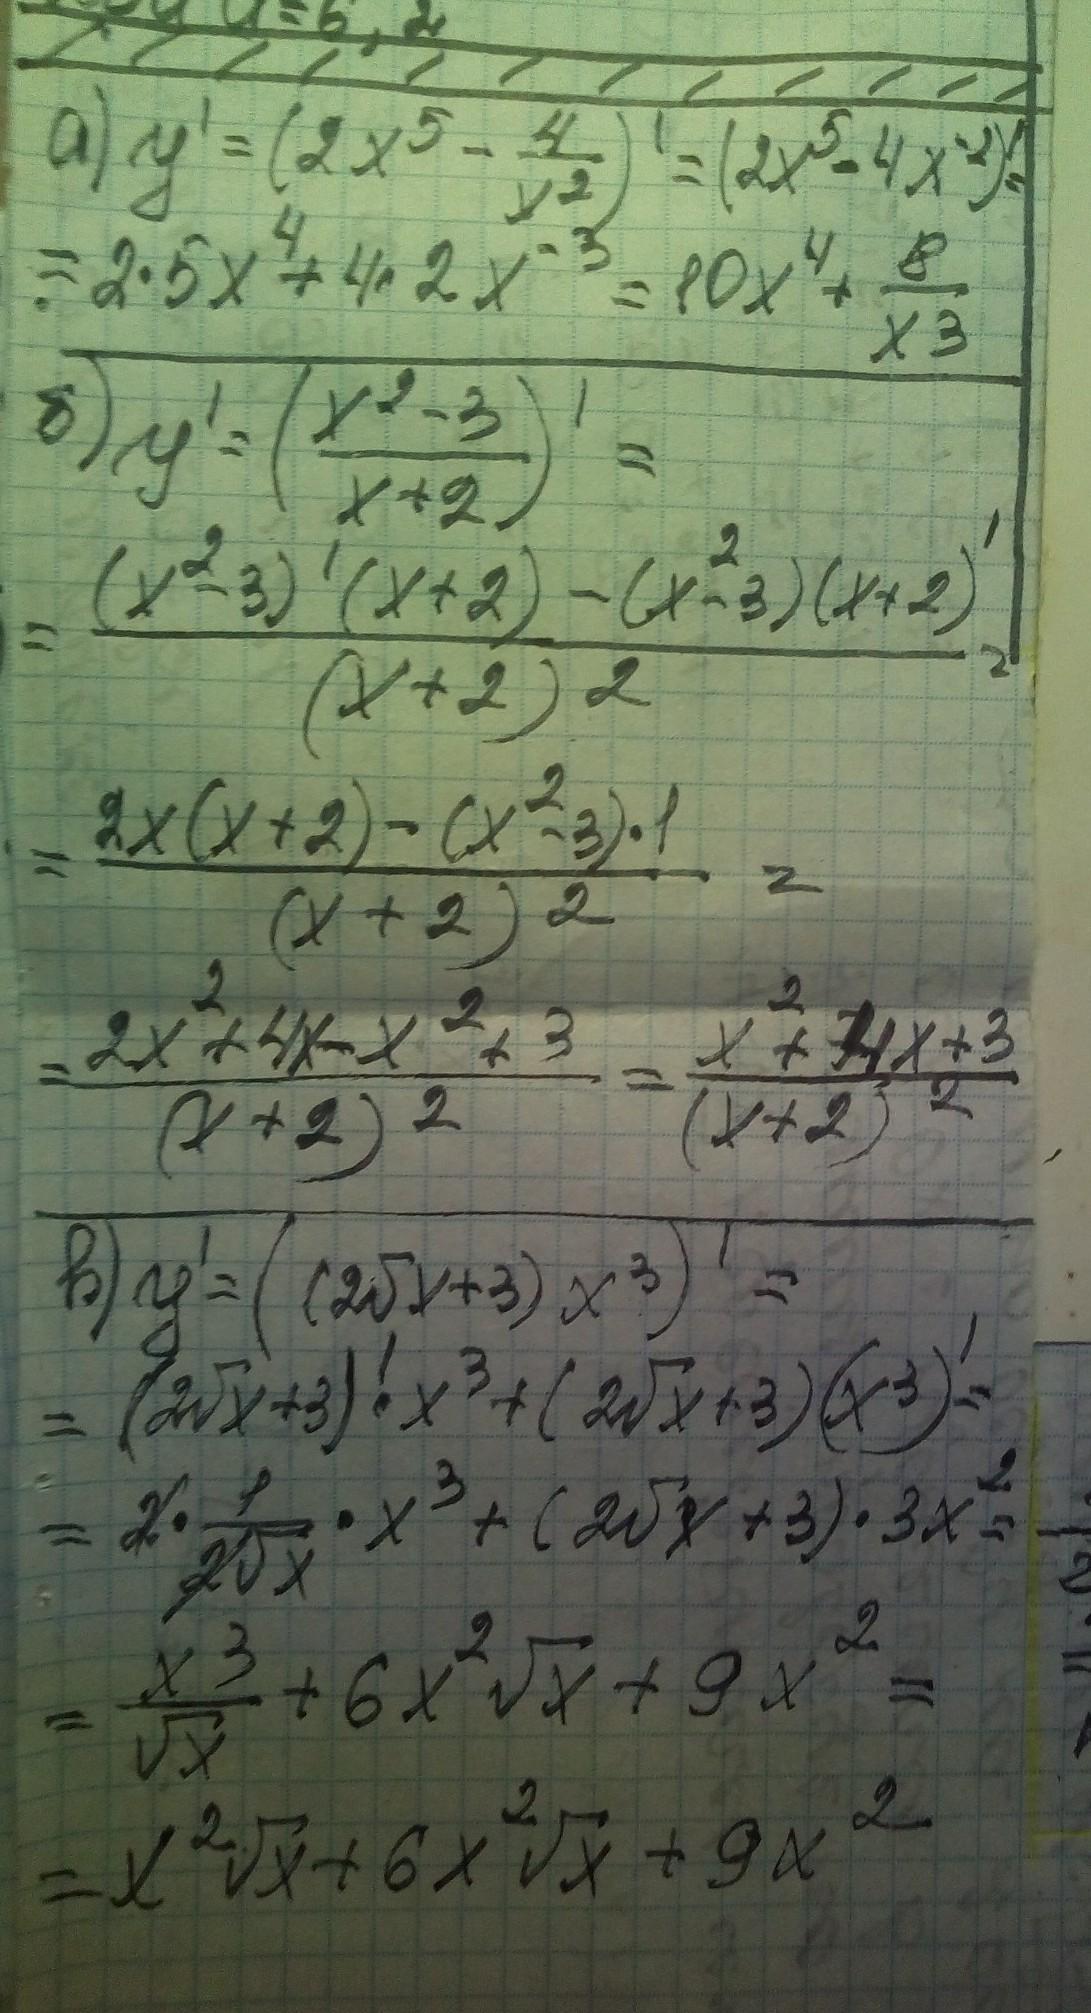 а) y' = (2x⁵ - 4/x²)' = (2x⁵ - 4x⁻²)' =
= 2·5x⁴ + 4·2x⁻³ = 10x⁴ + 8/x³
б) y' = ((x² - 3)/(x + 2))' =
= ((x² - 3)'(x + 2) - (x² - 3)(x + 2)')/(x + 2)² =
= (2x(x + 2) - (x² - 3)·1)/(x + 2)² =
= (2x² + 4x - x² + 3)/(x + 2)² = (x² + 4x + 3)/(x + 2)²
в) y' = ((2√x + 3) x³)' =
= (2√x + 3)'·x³ + (2√x + 3)(x³)' =
= 2·1/(2√x)·x³ + (2√x + 3)·3x² =
= x³/√x + 6x²√x + 9x² =
= x²√x + 6x²√x + 9x²